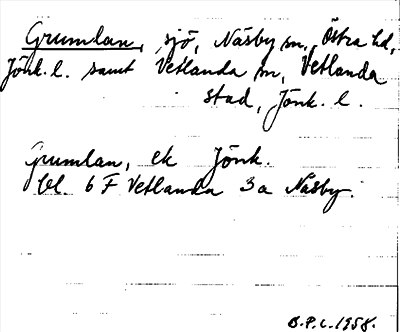 Grumlan, sjö, Näsby sn, Östra hd,
Jönk. l. samt Vetlanda sn, Vetlanda
stad, Jönk. l.
Grumlan, ek Jönk.
bl. 6 F Vetlanda 3a Näsby.
B.P.L. 1958.